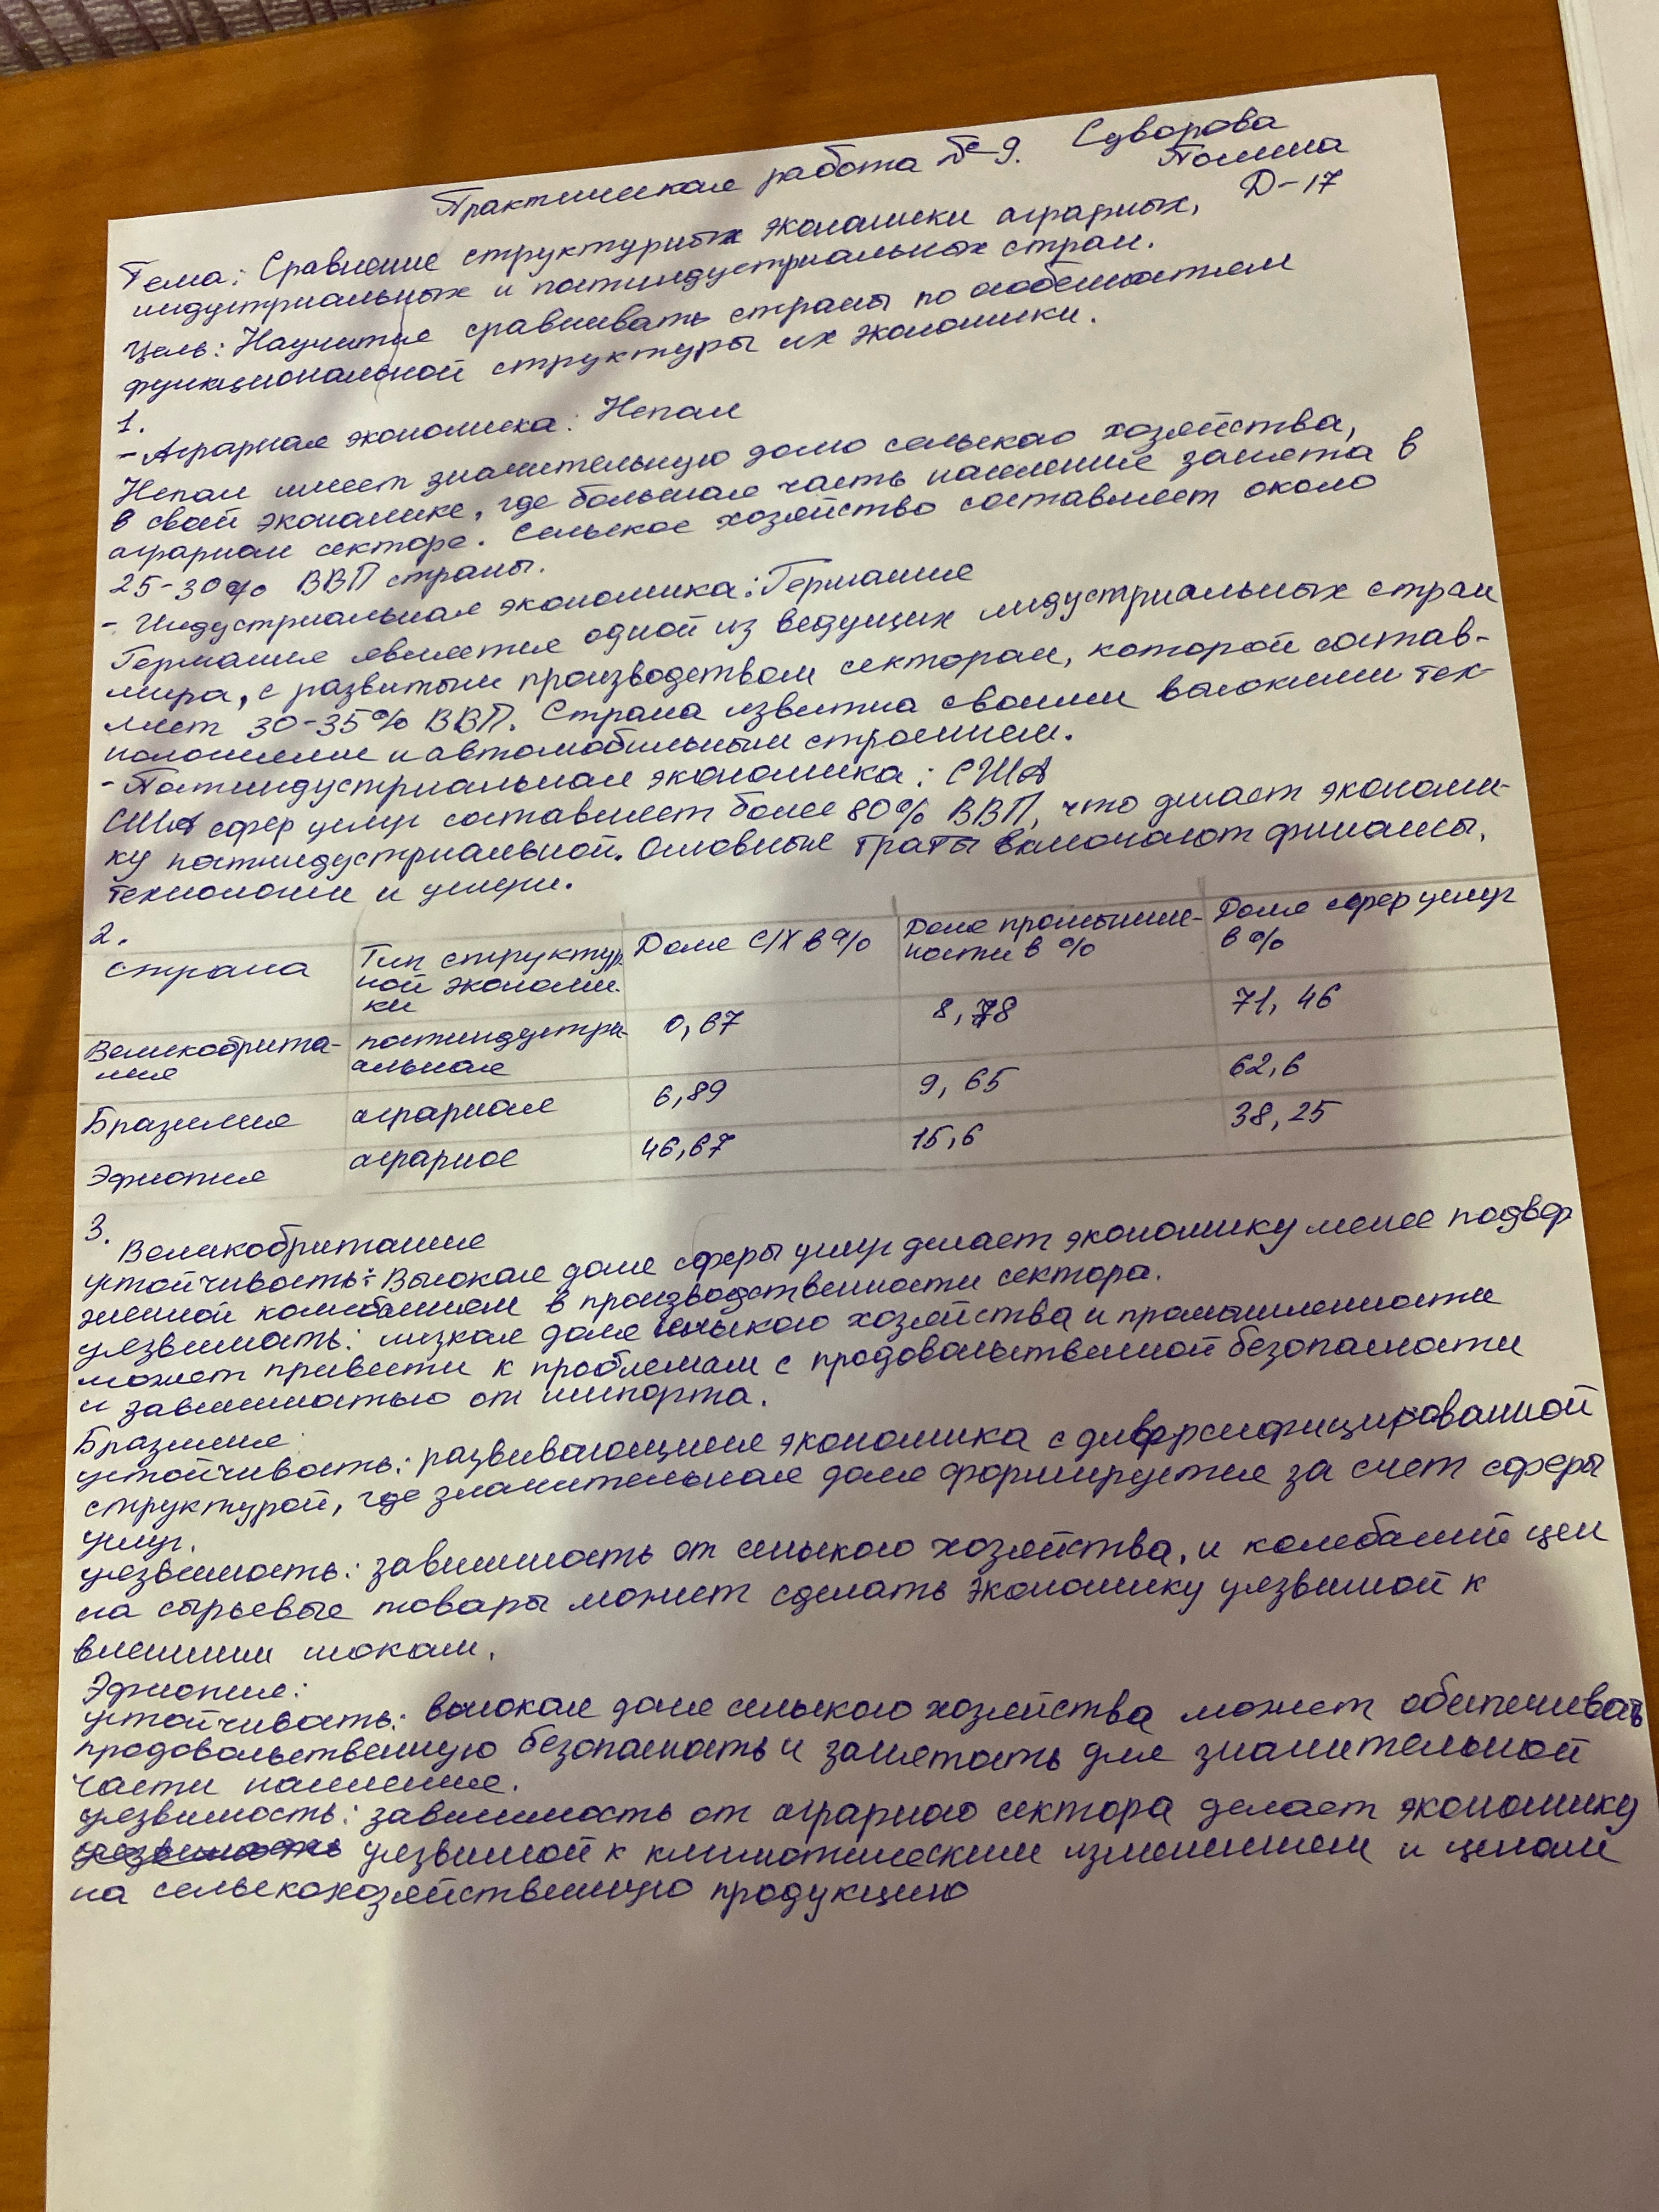 Практическая работа №9. Суворова
Полина
Д-17
Тема: Сравнение структурных экономики аграрных,
индустриальных и постиндустриальных стран.
Цель: Научится сравнивать страны по особенностям
функциональной структуры их экономики.
1.
- Аграрная экономика: Непал
Непал имеет значительную долю сельского хозяйства,
в свой экономике, где большая часть населения занята в
аграрном секторе. Сельское хозяйство составляет около
25-30% ВВП страны.
- Индустриальная экономика: Германия
Германия является одной из ведущих индустриальных стран
мира, с развитым производством сектором, которой состав-
ляет 30-35% ВВП. Страна известна своими высокими тех-
нологиями и автомобильным строением.
- Постиндустриальная экономика: США
США сфер услуг составляет более 80% ВВП, что делает экономи-
ку постиндустриальной. Основные траты включают финансы,
технологии и услуги.
2.
страна | Тип структур ной экономи- ки | Доля С/Х в % | Доля промышле- ности в % | Доля сфер услуг в %
Великобрита- ния | постиндустри- альная | 0,67 | 8,78 | 71,46
Бразилия | аграрная | 6,89 | 9,65 | 62,6
Эфиопия | аграрное | 46,67 | 15,6 | 38,25
3.
Великобритания
устойчивость: Высокая доля сферы услуг делает экономику менее подвер
женной колебаниям в производственности сектора.
уязвимость: низкая доля сельского хозяйства и промышленности
может привести к проблемам с продовольственной безопасности
и зависимостью от импорта.
Бразилия:
устойчивость: развивающиеся экономика с диверсифицированной
структурой, где значительная доля формируется за счет сферы
услуг.
уязвимость: зависимость от сельского хозяйства, и колебаний цен
на сырьевые товары может сделать экономику уязвимой к
внешним шокам.
Эфиопия:
устойчивость: высокая доля сельского хозяйства может обеспечивать
продовольственную безопасность и занятость для значительной
части населения.
уязвимость: зависимость от аграрного сектора делает экономику
уязвимой к климатическим изменениям и ценам
на сельскохозяйственную продукцию